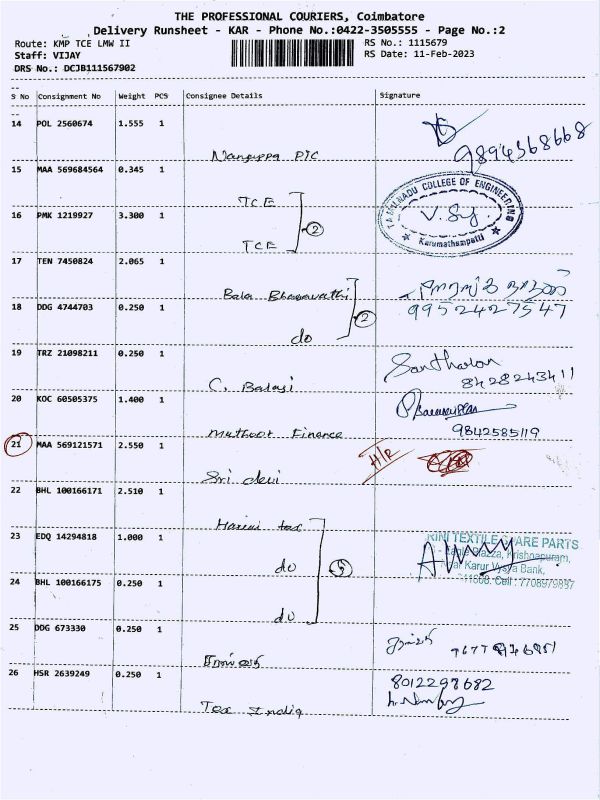 THE PROFESSIONAL COURIERS, Coimbatore
Delivery Runsheet - KAR - Phone No.:0422-3505555 - Page No.:2
Route: KMP TCE LMW II
RS No.: 1115679
Staff: VIJAY
RS Date: 11-Feb-2023
DRS No.: DCJB111567902
S No Consignment No Weight PCS Consignee Details Signature
14 POL 2560674 1.555 1
9894368668
15 MAA 569684564 0.345 1
TCE
TAMILNADU COLLEGE OF ENGINEERING
Karumathampatti
16 PMK 1219927 3.300 1
2
TCE
17 TEN 7450824 2.065 1
Bala
18 DDG 4744703 0.250 1
9952427547
2
do
19 TRZ 21098211 0.250 1
8428243411
C. Balaji
20 KOC 60505375 1.400 1
Muthoot Finance
9842585119
21 MAA 569121571 2.550 1
H/R
Sri devi
22 BHL 100166171 2.510 1
Harini tex
23 EDQ 14294818 1.000 1
RINI TEXTILE SPARE PARTS
Plazza, Krishnapuram,
Karur Vysya Bank,
Cell : 7708979837
do
24 BHL 100166175 0.250 1
do
25 DDG 673330 0.250 1
26 HSR 2639249 0.250 1
8012298682
Tex India